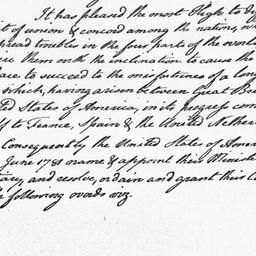 It has pleased the most High to di
t of union & concord among the nations, w
bread troubles in the four parts of the world
re them with the inclination to cause the
ace to succeed to the misfortunes of a long
which, having arisen between great Bri
ted States of America, in its progress com
lf to France, Spain & the United Nether
Consequently the United States of Amer
June 1781 name & appoint their Ministe
tiary, and resolve, ordain and grant their Co
following words viz.